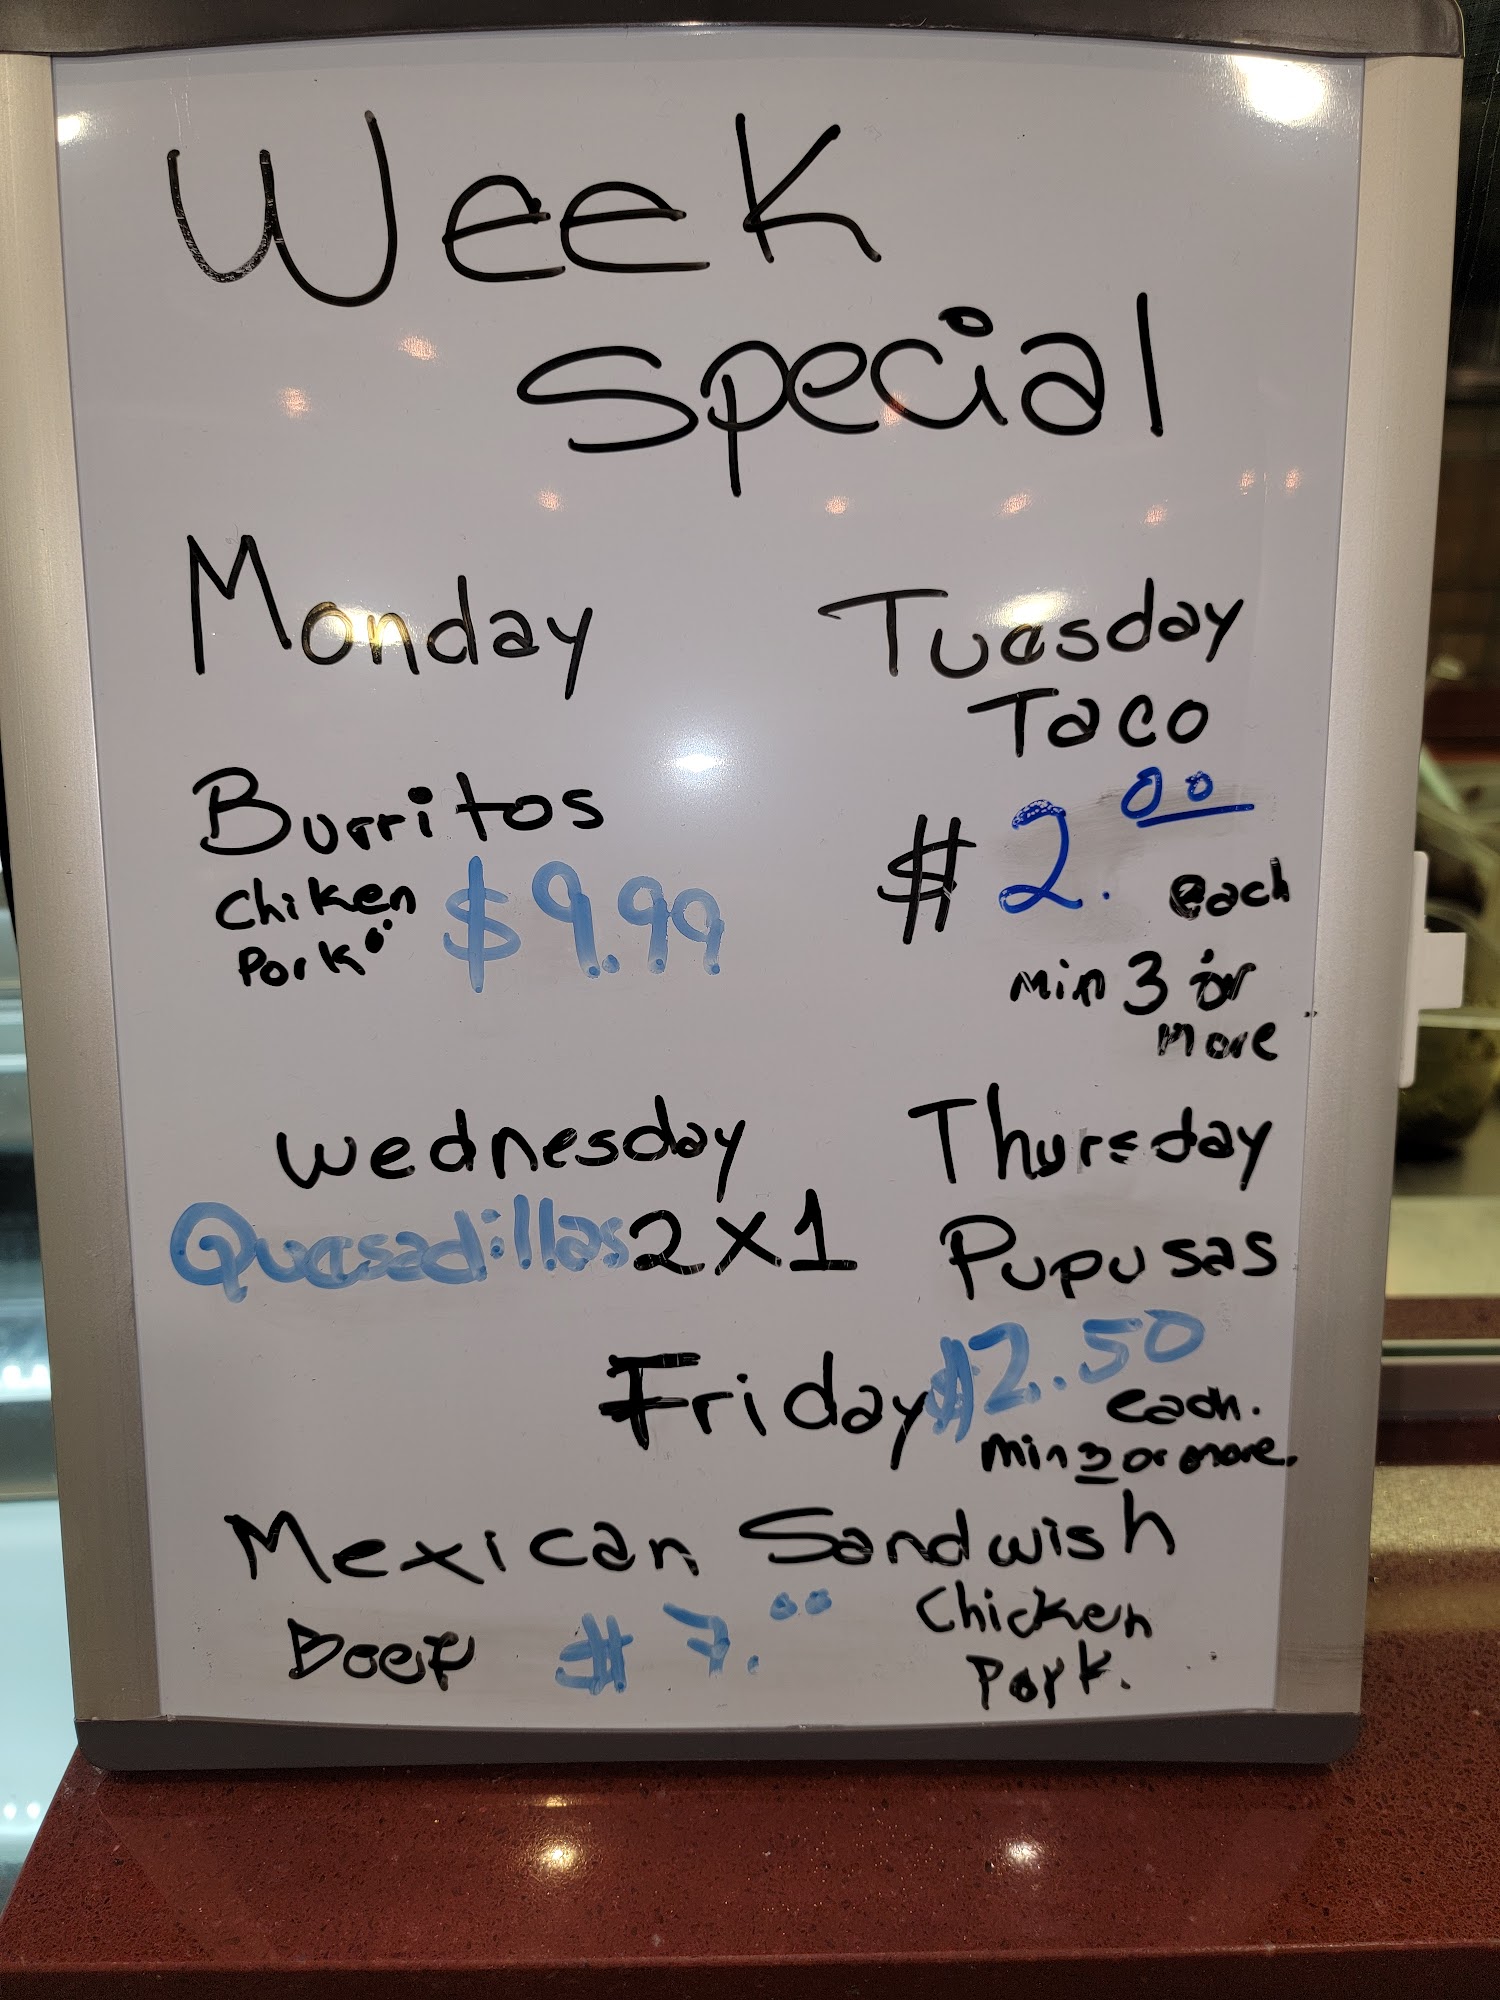 Week
Special
Monday
Burritos
Chiken
Pork
$9.99
Tuesday
Taco
$2.00 each
min 3 or
more
Wednesday
Quesadillas 2x1
Thursday
Pupusas
$2.50
each.
min 3 or more.
Friday
Mexican Sandwish
Beef $7.00
Chicken
Pork.